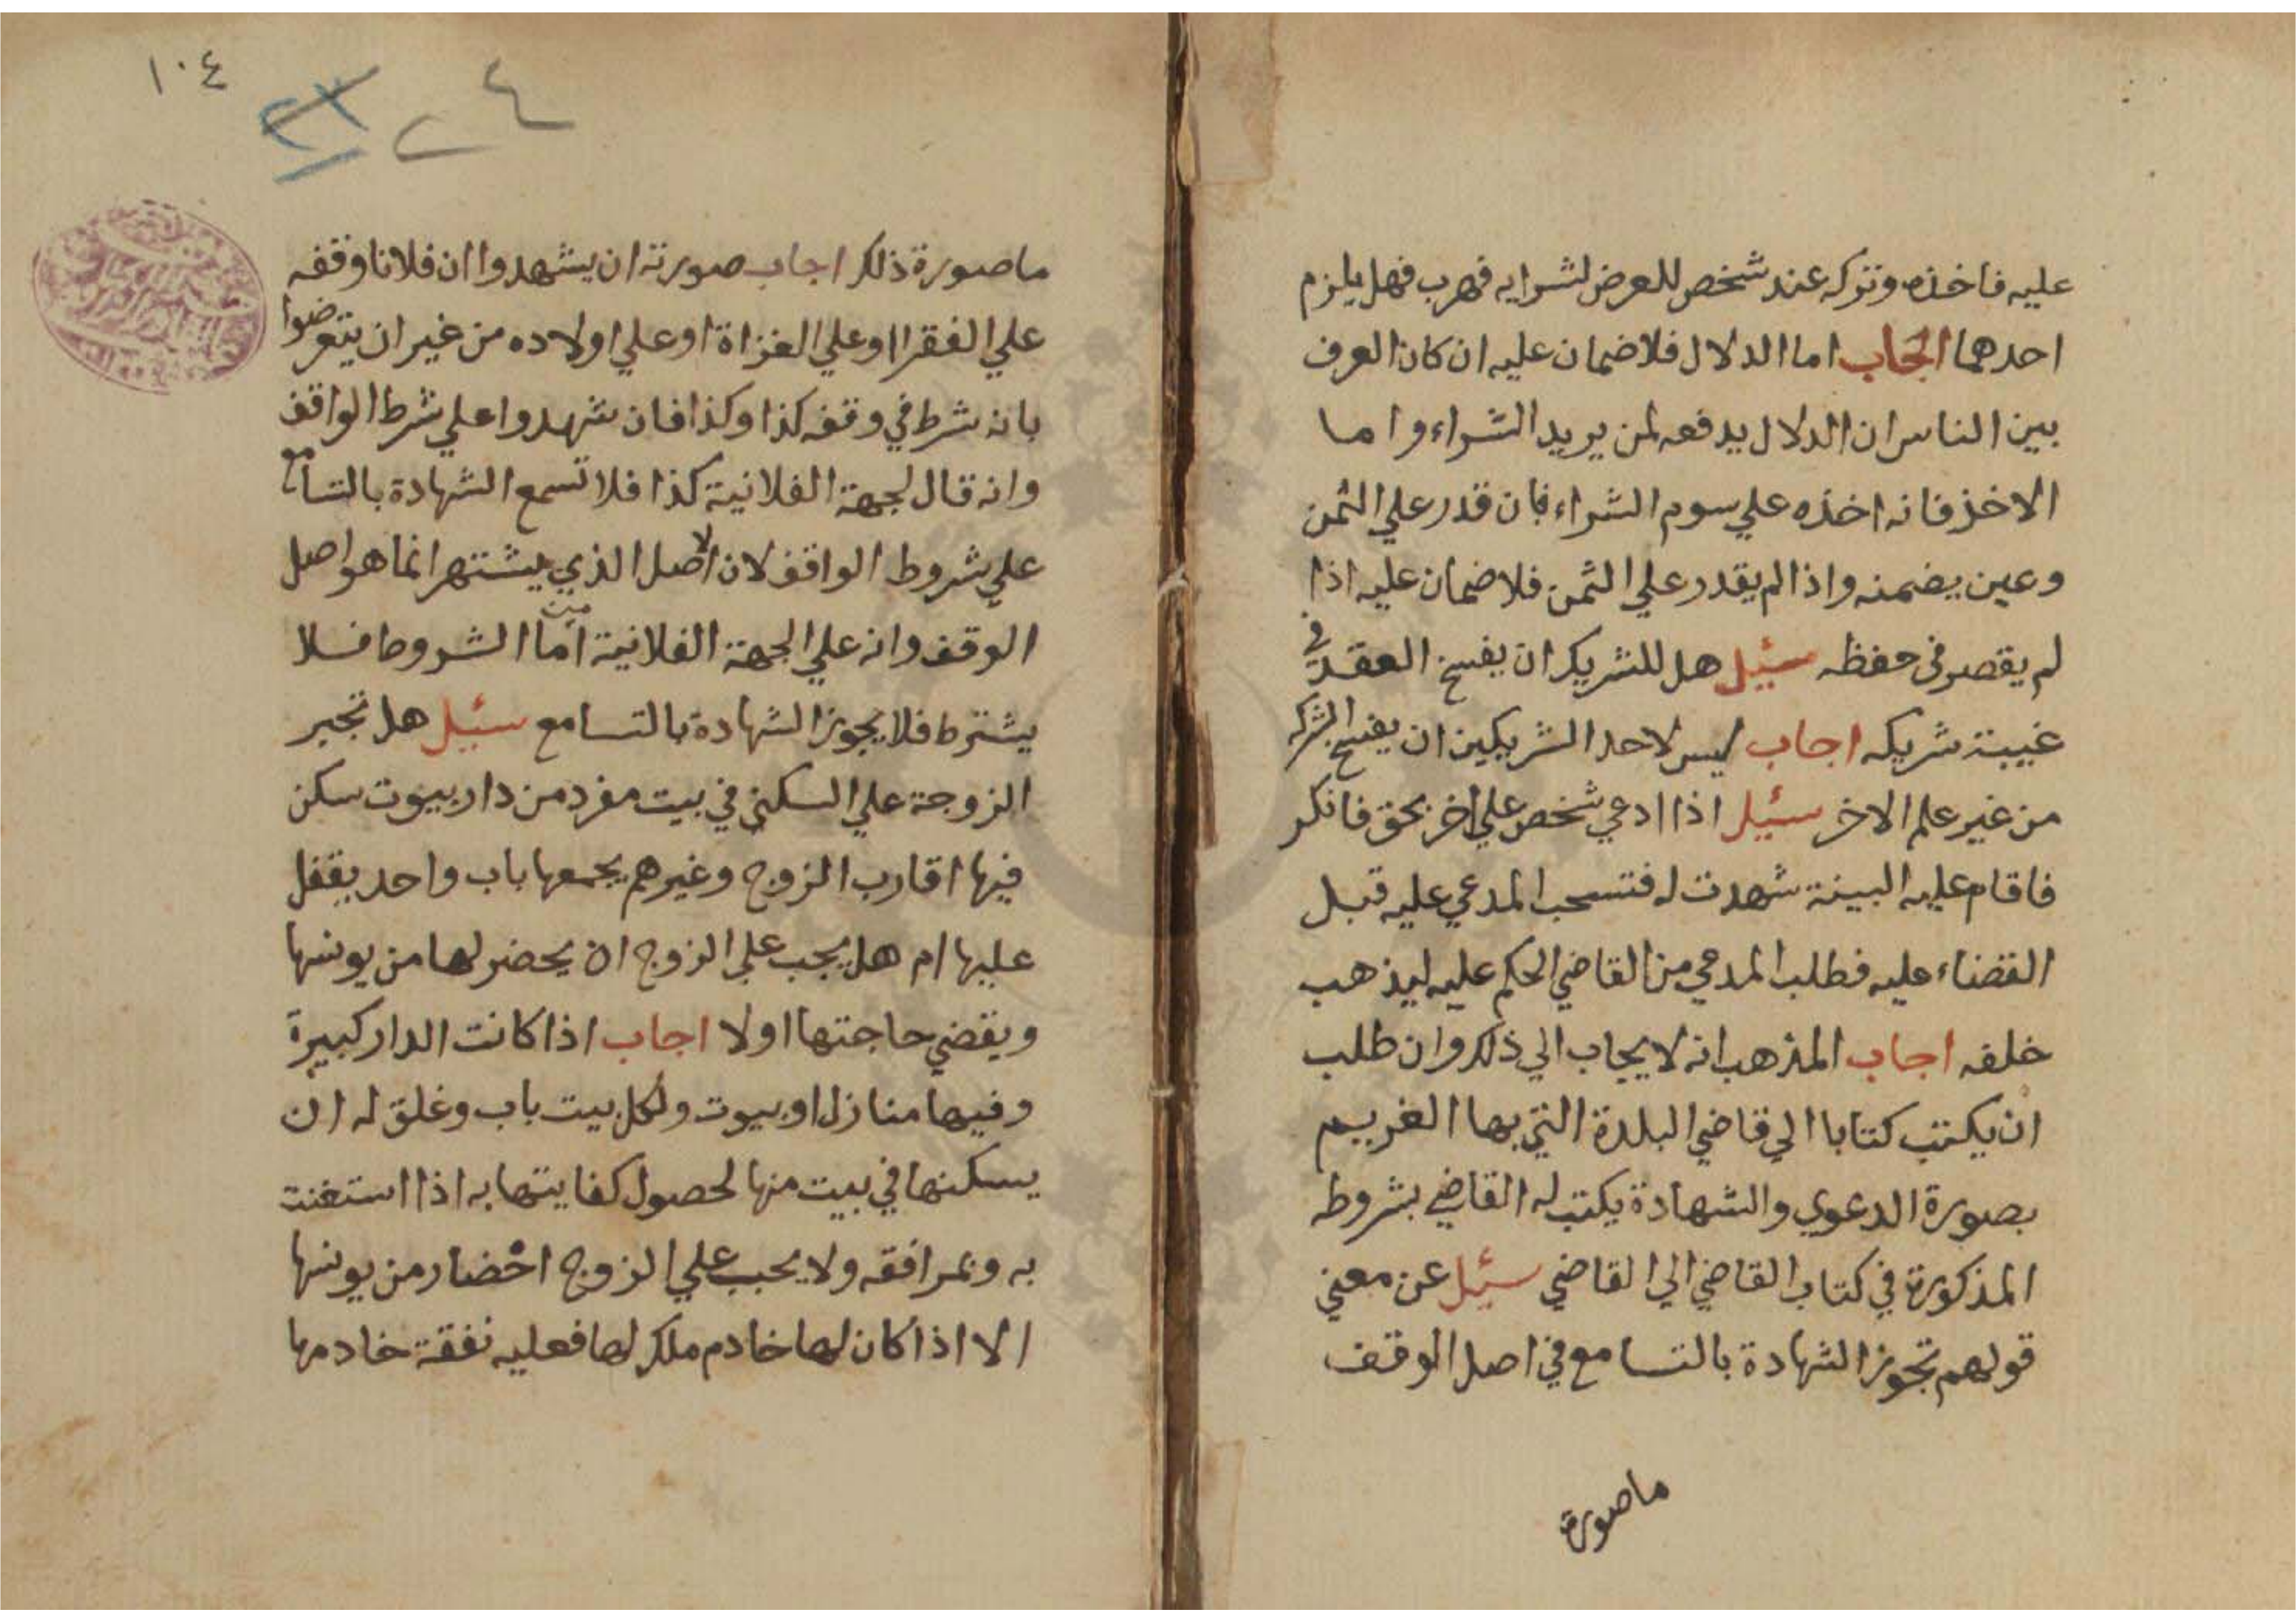 عليه فاخذه وتركه عند شخص للعرض لشرايه فهرب فهل يلزم
احدهما الجاب اما الدلال فلا ضمان عليه ان كان العرف
بين الناس ان الدلال يدفعه لمن يريد الشراء واما
الاخذ فانه اخذه علي سوم الشراء فان قدر علي الثمن
وعين يضمنه واذا لم يقدر علي الثمن فلا ضمان عليه اذا
لم يقصر في حفظه سئيل هل للشريك ان يفسخ العقد في
غيبة شريكه اجاب ليس لاحد الشريكين ان يفسخ الشركه
من غير علم الاخر سئيل اذا ادعي شخص علي اخر بحق فانكر
فاقام عليه البينة شهدت له فتسحب المدعي عليه قبل
القضاء عليه فطلب المدعي من القاضي الحكم عليه ليذهب
خلفه اجاب المذهب انه لا يجاب الي ذلك وان طلب
ان يكتب كتابا الي قاضي البلدة التي بها الغريم
بصورة الدعوي والشهادة يكتب له القاضي بشروطه
المذكورة في كتاب القاضي الي القاضي سئيل عن معني
قولهم تجوز الشهادة بالتسامع في اصل الوقف
ما صورة
١٠٤
ما صورة ذلك اجاب صورته ان يشهدوا ان فلانا وقفه
علي الفقرا او علي الغزاة او علي اولاده من غير ان يتعرضوا
بانه شرط في وقفه كذا وكذا فان شهدوا علي شرط الواقف
وانه قال لجهة الفلانية كذا فلا تسمع الشهادة بالتسامع
علي شروط الواقف لان الاصل الذي يشتهر انما هو اصل
الوقف وانه علي الجهة الفلانية اما الشروط فلا
يشترط فلا يجوز الشهادة بالتسامع سئيل هل تجبر
الزوجة علي السكني في بيت مفرد من دار بيوت سكن
فيها اقارب الزوج وغيرهم يجمعها باب واحد يقفل
عليها ام هل يجب علي الزوج ان يحضر لها من يونسها
ويقضي حاجتها او لا اجاب اذا كانت الدار كبيرة
وفيها منازل او بيوت ولكل بيت باب وغلق له ان
يسكنها في بيت منها لحصول كفايتها به اذا استغنت
به وبمرافقه ولا يجب علي الزوج احضار من يونسها
الا اذا كان لها خادم ملك لها فعليه نفقة خادمها